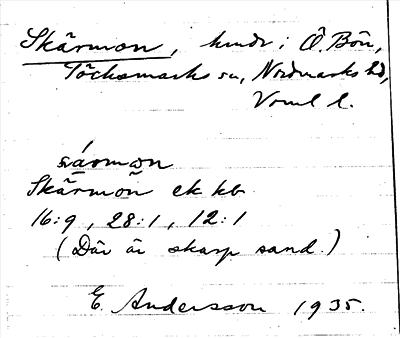 Skärmon, hmdr i Ö. Bön,
Töcksmarks sn, Nordmarks hd,
Vrml l.
sármon
Skärmon ek kb
16:9, 28:1, 12:1
(Där är skarp sand.)
E. Andersson 1935.